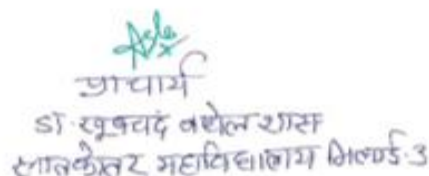 प्राचार्य
डॉ. खूबचंद बघेल शास
स्नातकोत्तर महाविद्यालय भिलाई-3